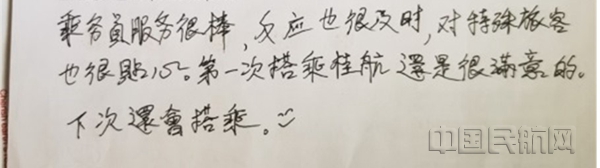 乘务員服务很棒,反应也很及时,对特殊旅客
也很貼心。第一次搭乘桂航還是很滿意的。
下次還會搭乘。
中国民航网